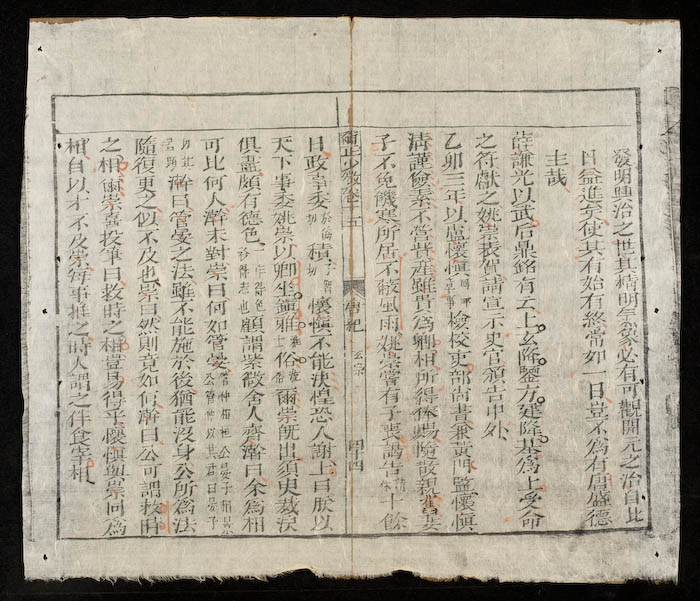 發明興治之世其精明气象必有可觀開元之治自此
日益進矣使其有始有終常如一日豈不爲有唐盛德
主哉
薛謙光以武后鼎銘有云上玄降鑒方建隆基爲上受命
之符獻之姚崇表賀請宣示史官頒告中外
乙卯三年以盧懷愼檢校吏部尚書兼黃門監懷愼
淸謹儉素不營貲産雖貴爲卿相所得俸賜隨散親舊妻
子不免饑寒所居不蔽風雨姚崇嘗有子喪謁告十餘
少微卷十五 唐紀 玄宗 四十四
日政事委積懷愼不能決惶恐入謝上曰朕以
天下事委姚崇以卿坐鎭雅俗爾崇旣出須臾裁決
俱盡頗有德色顧謂紫微舍人齊澣曰余爲相
可比何人澣未對崇曰何如管晏
澣曰管晏之法雖不能施於後猶能沒身公所爲法
隨復更之似不及也崇曰然則竟如何澣曰公可謂救時
之相爾崇喜投筆曰救時之相豈易得乎懷愼與崇同爲
相自以才不及崇每事推之時人謂之伴食宰相